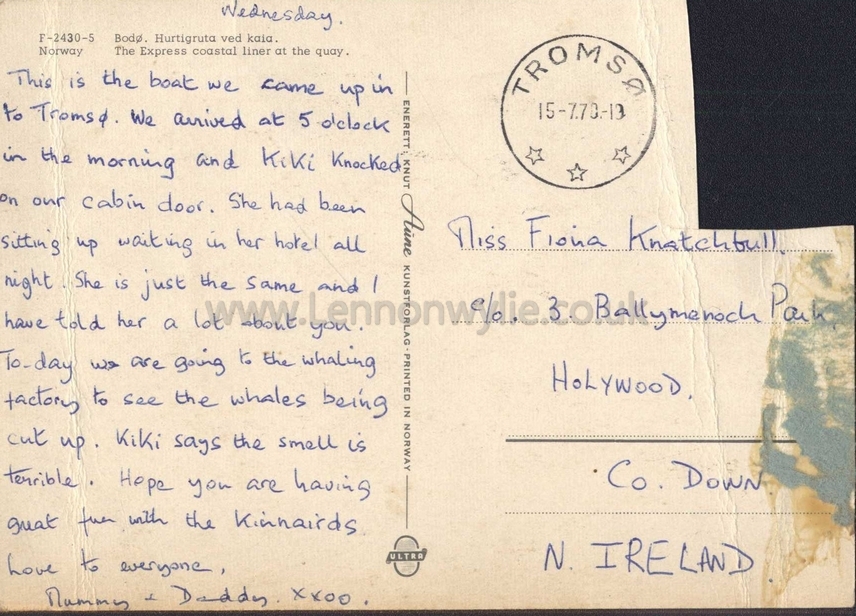 Wednesday.
F-2430-5 Bodø. Hurtigruta ved kaia.
Norway The Express coastal liner at the quay.
This is the boat we came up in
to Tromsø. We arrived at 5 o'clock
in the morning and Kiki knocked
on our cabin door. She had been
sitting up waiting in her hotel all
night. She is just the same and I
have told her a lot about you.
To-day we are going to the whaling
factory to see the whales being
cut up. Kiki says the smell is
terrible. Hope you are having
great fun with the Kinnairds
Love to everyone,
Mummy + Daddy. xxoo.
ENERETT: KNUT Aune KUNSTFORLAG · PRINTED IN NORWAY
ULTRA
TROMSØ
15-7.70.-19
Miss Fiona Knatchbull.
c/o. 3. Ballymenoch Park.
HOLYWOOD.
Co. DOWN.
N. IRELAND.
www.Lennonwylie.co.uk